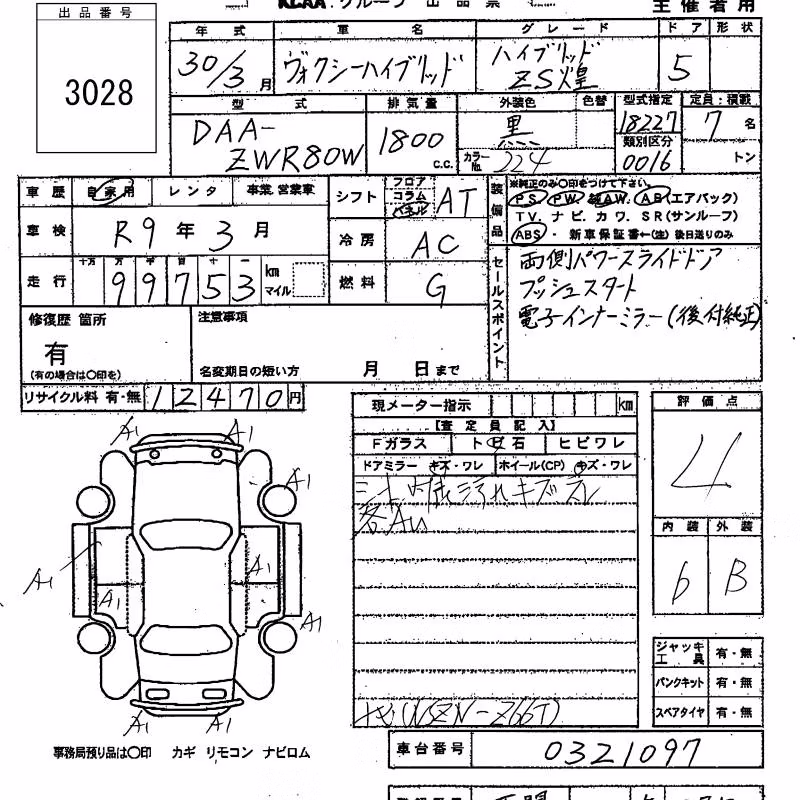 KCAA グループ 出品票
主催者用
出品番号
3028
年式 車名 グレード ドア 形状
30/3月 ヴォクシーハイブリッド ハイブリッド ZS煌 5
型式 排気量 外装色 色替 型式指定 定員・積載
DAA-ZWR80W 1800 c.c. 黒 カラーNo. 224 18227 7名
類別区分
0016 トン
車歴 自家用 レンタ 事業.営業車 シフト フロア コラム パネル AT
車検 R9年3月 冷房 AC
走行 十万 万 千 百 十 一 99753 km マイル 燃料 G
装備品 ※純正のみ〇印をつけて下さい。
PS PW AW AB(エアバック)
TV. ナビ. カワ. SR(サンルーフ)
ABS ・ 新車保証書←(注) 後日送りのみ
セールスポイント
両側パワースライドドア
プッシュスタート
電子インナーミラー(後付純正)
修復歴 箇所 注意事項
有
(有の場合は〇印を) 名変期日の短い方 月 日まで
リサイクル料 有・無 12470円
現メーター指示 km
【査定員記入】
Fガラス トビ石 ヒビワレ
ドアミラー キズ・ワレ ホイール(CP) キズ・ワレ
シート 汚れキズスレ
各AU
A1 A1
A1 A1
A1 A1
A1 A1
A1 A1
評価点
4
内装 外装
6 B
ジャッキ 工具 有・無
パンクキット 有・無
スペアタイヤ 有・無
(NSZN-Z66T)
事務局預り品は〇印 カギ リモコン ナビロム
車台番号 0321097